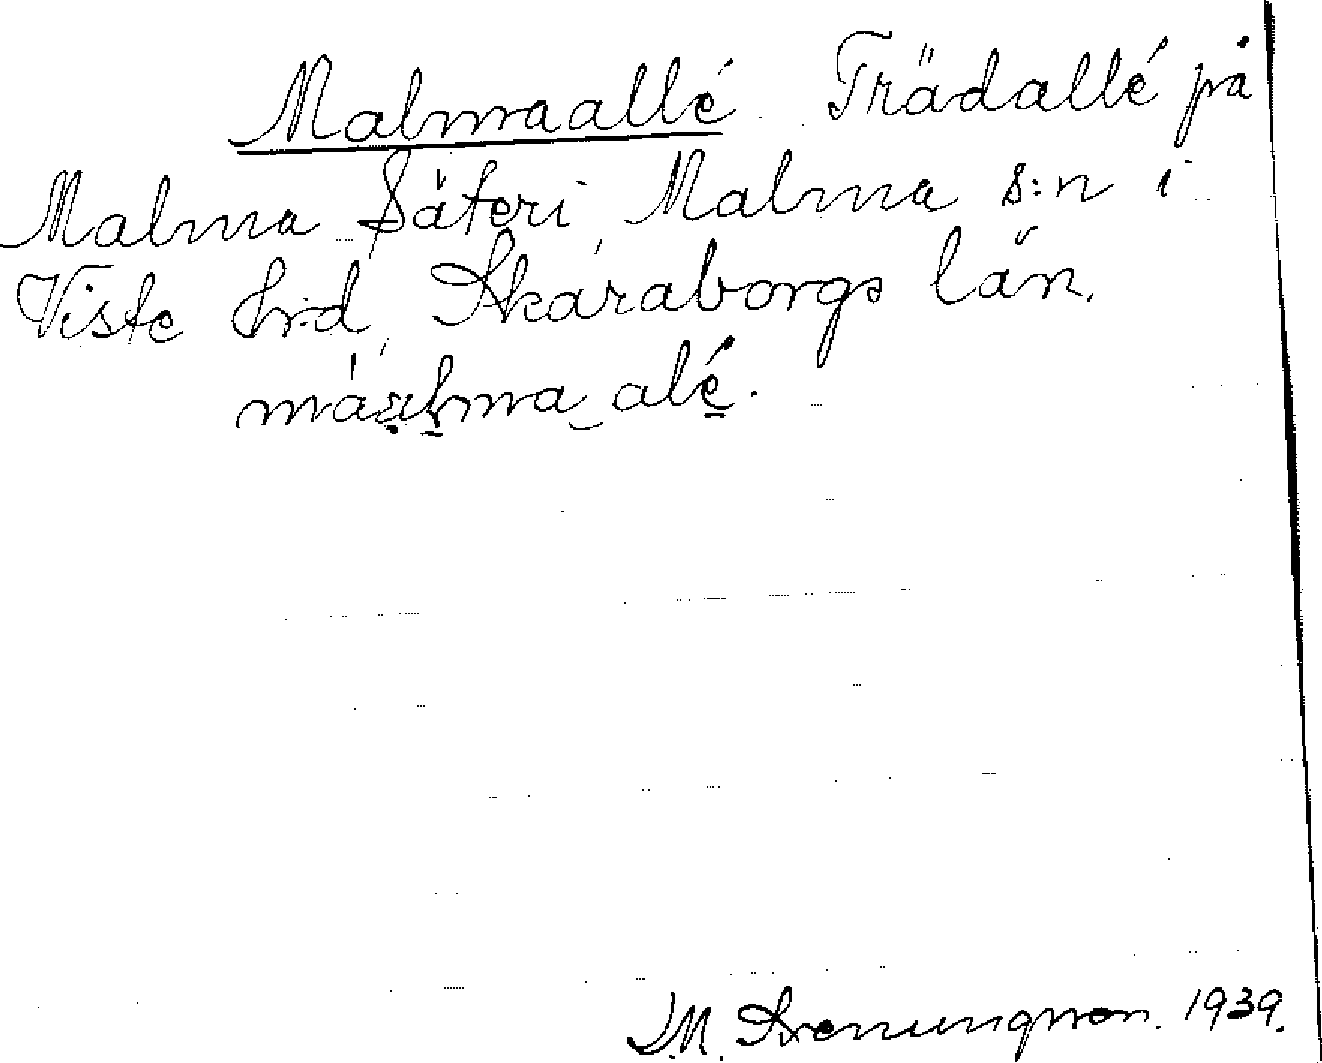 Malmaallé Trädallé på
Malma Säteri, Malma s:n i
Viste hrd, Skaraborgs län.
alé.
1939.